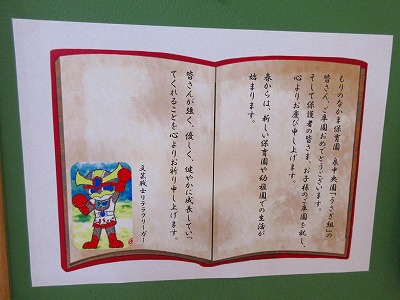 もりのなかま保育園 泉中央園「うさぎ組」の
皆さん、ご卒園おめでとうございます。
そして保護者の皆さま、お子様のご卒園を祝し、
心よりお慶び申し上げます。
春からは、新しい保育園や幼稚園での生活が
始まります。
皆さんが強く、優しく、健やかに成長していっ
てくれることを心よりお祈り申し上げます。
文芸戦士リテラフリーガー